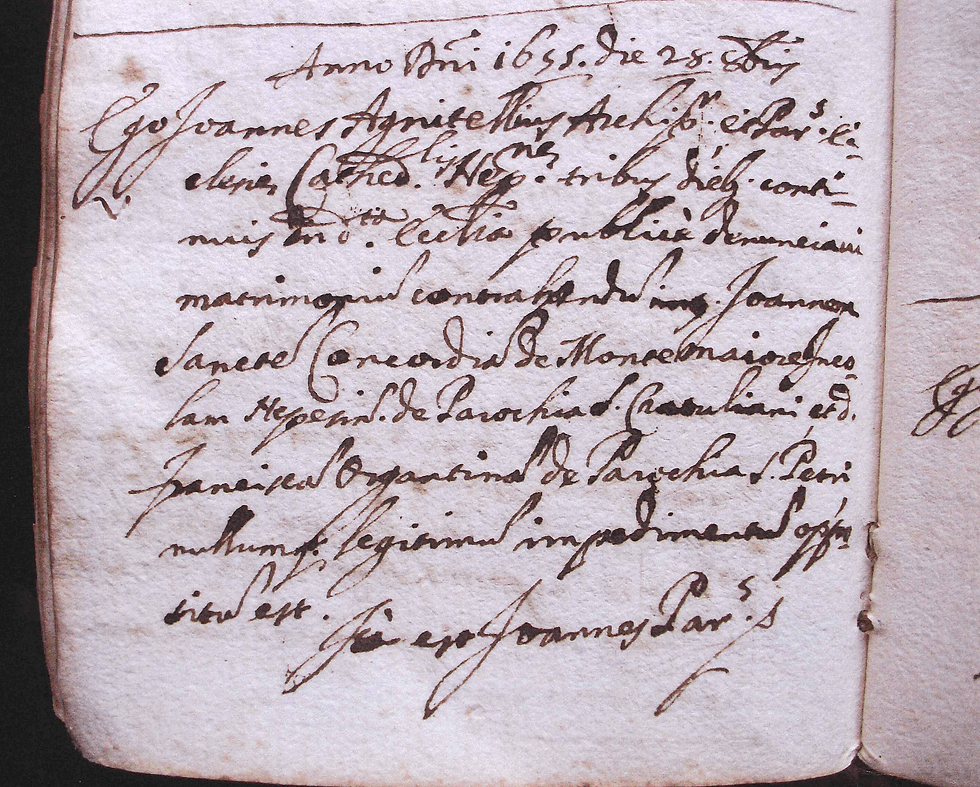 Anno Dñi 1655. die 28. Xbris
Ego Joannes Agnitellius Archipr. et Par.s Ec-
clesiæ Cathed.lis Nep.næ tribus dieb. conti-
nuis in d.ta Ecclia publicè denunciavi
matrimoniũ contrahendũ int. Joannem
Sancte Concordiã de Montemaiore Inco-
lam Nepesin. de Parochia S. Gratuliani, et d.
Franciscã Organtinã de Parochia S. Petri
nullumq; legitimũ impedimentũ oppo-
sitũ est.
Ita est Joannes Par.s